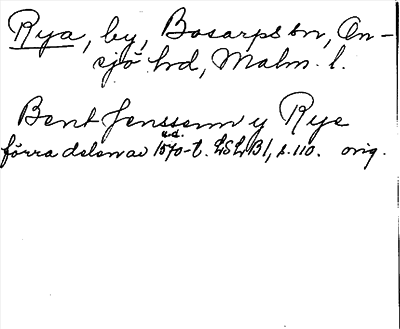 Rya, by, Bosarps sn, On-
sjö hrd, Malm. l.
Bent Jenssenn y Rye
u.d.
förra delen av 1570-t. LSLB1, s. 110. orig.